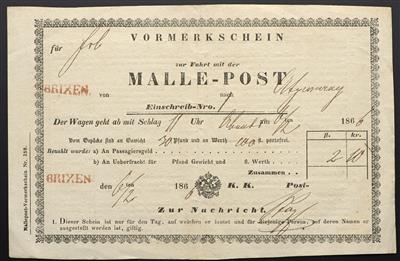 VORMERKSCHEIN
für
zur Fahrt mit der
MALLE-POST
BRIXEN.
von nach
Einschreib-Nro. 1
Der Wagen geht ab mit Schlag 11 Uhr am 6/2 186
Vom Gepäcke sind an Gewicht 30 Pfund und an Werth 100 fl. portofrei. fl. kr.
Bezahlt wurde: a) An Passagiersgeld 2 10
b) An Ueberfracht für Pfund Gewicht und fl. Werth
Zusammen
BRIXEN.
den 6/2 186 K. K. Post-
Zur Nachricht.
1. Dieser Schein ist nur für den Tag, auf welchen er lautet und für diejenige Person, auf deren Namen er
ausgestellt worden ist, giltig.
Mallepost-Vormerkschein Nr. 158.